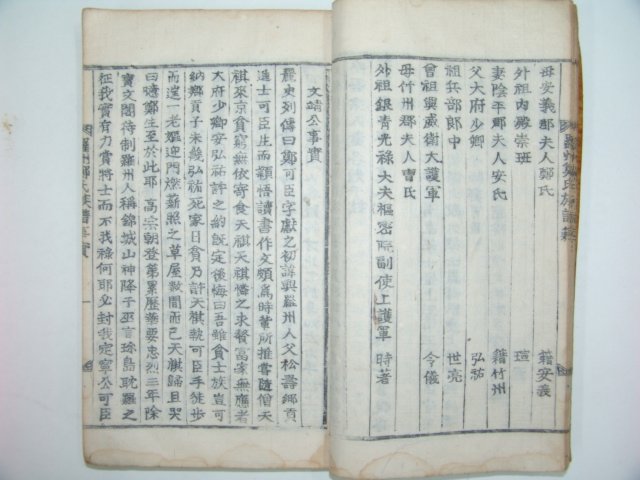 羅州鄭氏族譜錄
母安義郡夫人鄭氏 籍安義
外祖內殿崇班 瑄
妻陰平郡夫人安氏 籍竹州
父大府少卿 弘祐
祖兵部郎中 世亮
曾祖興威衛大護軍 令儀
母竹州郡夫人曹氏
外祖銀青光祿大夫樞密院副使上護軍 時著
文靖公事實
麗史列傳曰鄭可臣字獻之初諱興羅州人父松壽鄉貢
進士可臣生而穎悟讀書作文頗爲時輩所推嘗隨僧天
祺來京貧窮無依寄食天祺天祺憐之求贅富家無應者
大府少卿安弘祐許之約旣定後悔曰吾雖貧士族豈可
納鄉貢子未幾弘祐死家日貧乃許天祺執可臣手徒步
而達一老嫗迎門燃薪照之草屋數間而已天祺歸且哭
曰噫鄭生至於此耶 高宗朝登第累歷華要忠烈三年除
寶文閣待制羅州人稱錦城山神降于巫言珍島耽羅之
征我實有力賞將士而不我祿何耶必封我定寧公可臣
羅州鄭氏族譜事實 一